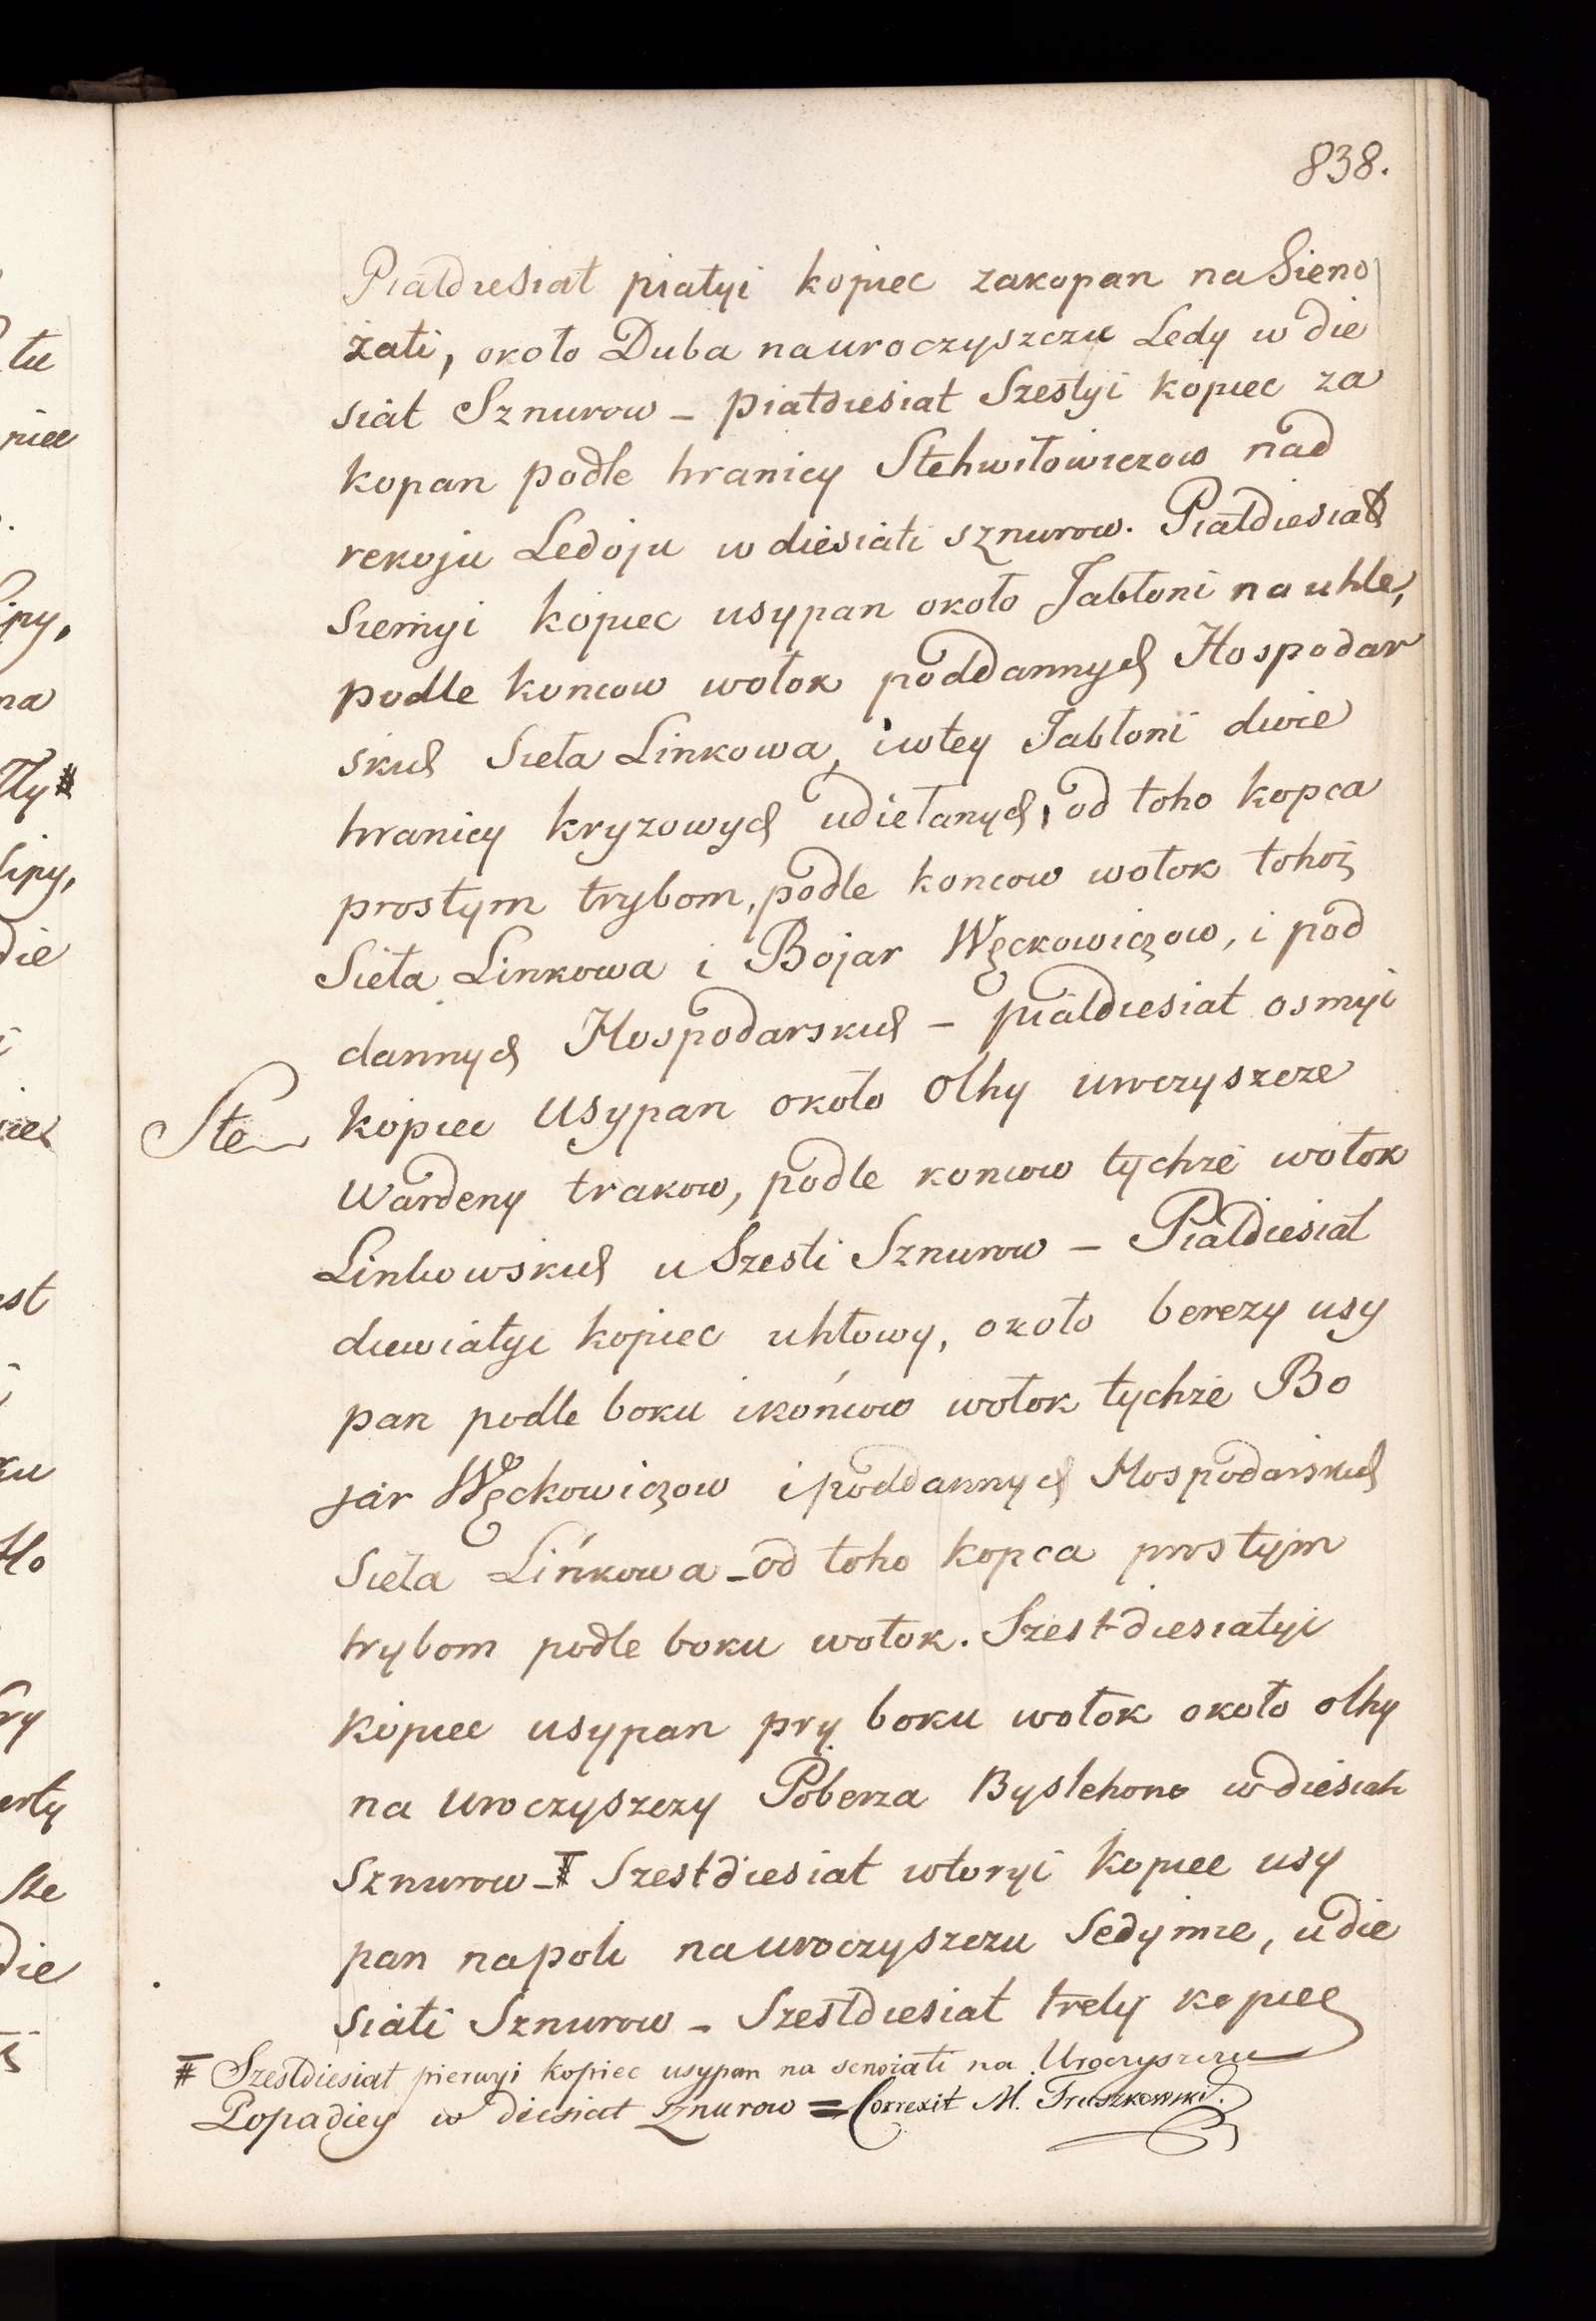 838.
Piatdiesiat piatyi kopiec zakopan na Sieno
żati, około Duba na uroczyszczu Ledy w die
siat Sznurow – piatdiesiat Szestyi kopiec za
kopan podle hranicy Stehwiłowiczow nad
rekoju Ledoju w diesiati sznurow. Piatdiesiat
Siemyi kopiec usypan około Jabłoni na uhle,
podle koncow wołok poddannych Hospodar
skich Sieła Linkowa, i w tey Jabłoni dwie
hranicy kryzowych udiełanych, od toho kopca
prostym trybom, podle koncow wołok tohoż
Sieła Linkowa i Bojar Węckowiczow, i pod
dannych Hospodarskich – piatdiesiat osmyi
Ste kopiec usypan około Olhy uroczyszcze
Wardeny trakow, podle koncow tychże wołok
Linkowskich u Szesti Sznurow – Piatdiesiat
diewiatyi kopiec uhłowy, około berezy usy
pan podle boku i końcow wołok tychże Bo
jar Węckowiczow i poddannych Hospodarskich
Sieła Lińkowa – od toho kopca prostym
trybom podle boku wołok. Szest-diesiatyi
kopiec usypan pry boku wołok około olhy
na uroczyszczy Poberza Bystehono w diesiati
Sznurow – # Szestdiesiat wtoryi kopiec usy
pan na poli na uroczyszczu Sedymie, u die
siati Sznurow – Szestdiesiat trety kopiec
# Szestdiesiat pierwyi kopiec usypan na senożati na Uroczyszczu
Popadicy w diesiat Sznurow = Correxit M. Truszkowski.